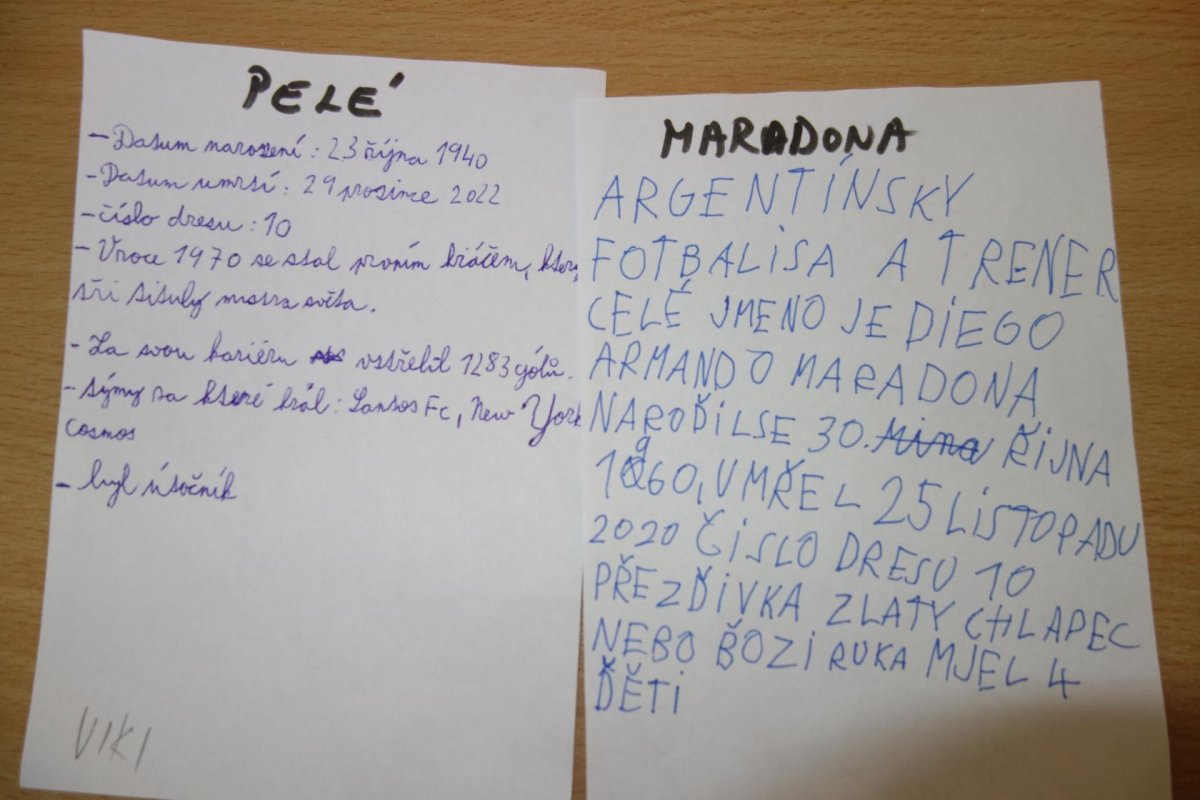 PELÉ
- Datum narození : 23 října 1940
- Datum umrtí : 29 prosince 2022
- číslo dresu : 10
- V roce 1970 se stal prvním hráčem, který
tři tituly mistra světa.
- Za svou kariéru vstřelil 1283 gólů.
- týmy za které hrál : Santos Fc, New York
Cosmos
- byl útočník
VIKI
MARADONA
ARGENTÍNSKY
FOTBALISA A TRENER
CELÉ JMENO JE DIEGO
ARMANDO MARADONA
NAROĎILSE 30. ŘIJNA
1960, UMŘEL 25 LISTOPADU
2020 ČISLO DRESU 10
PŘEZĎIVKA ZLATY CHLAPEC
NEBO BOZI RUKA MJEL 4
ĎĚTI